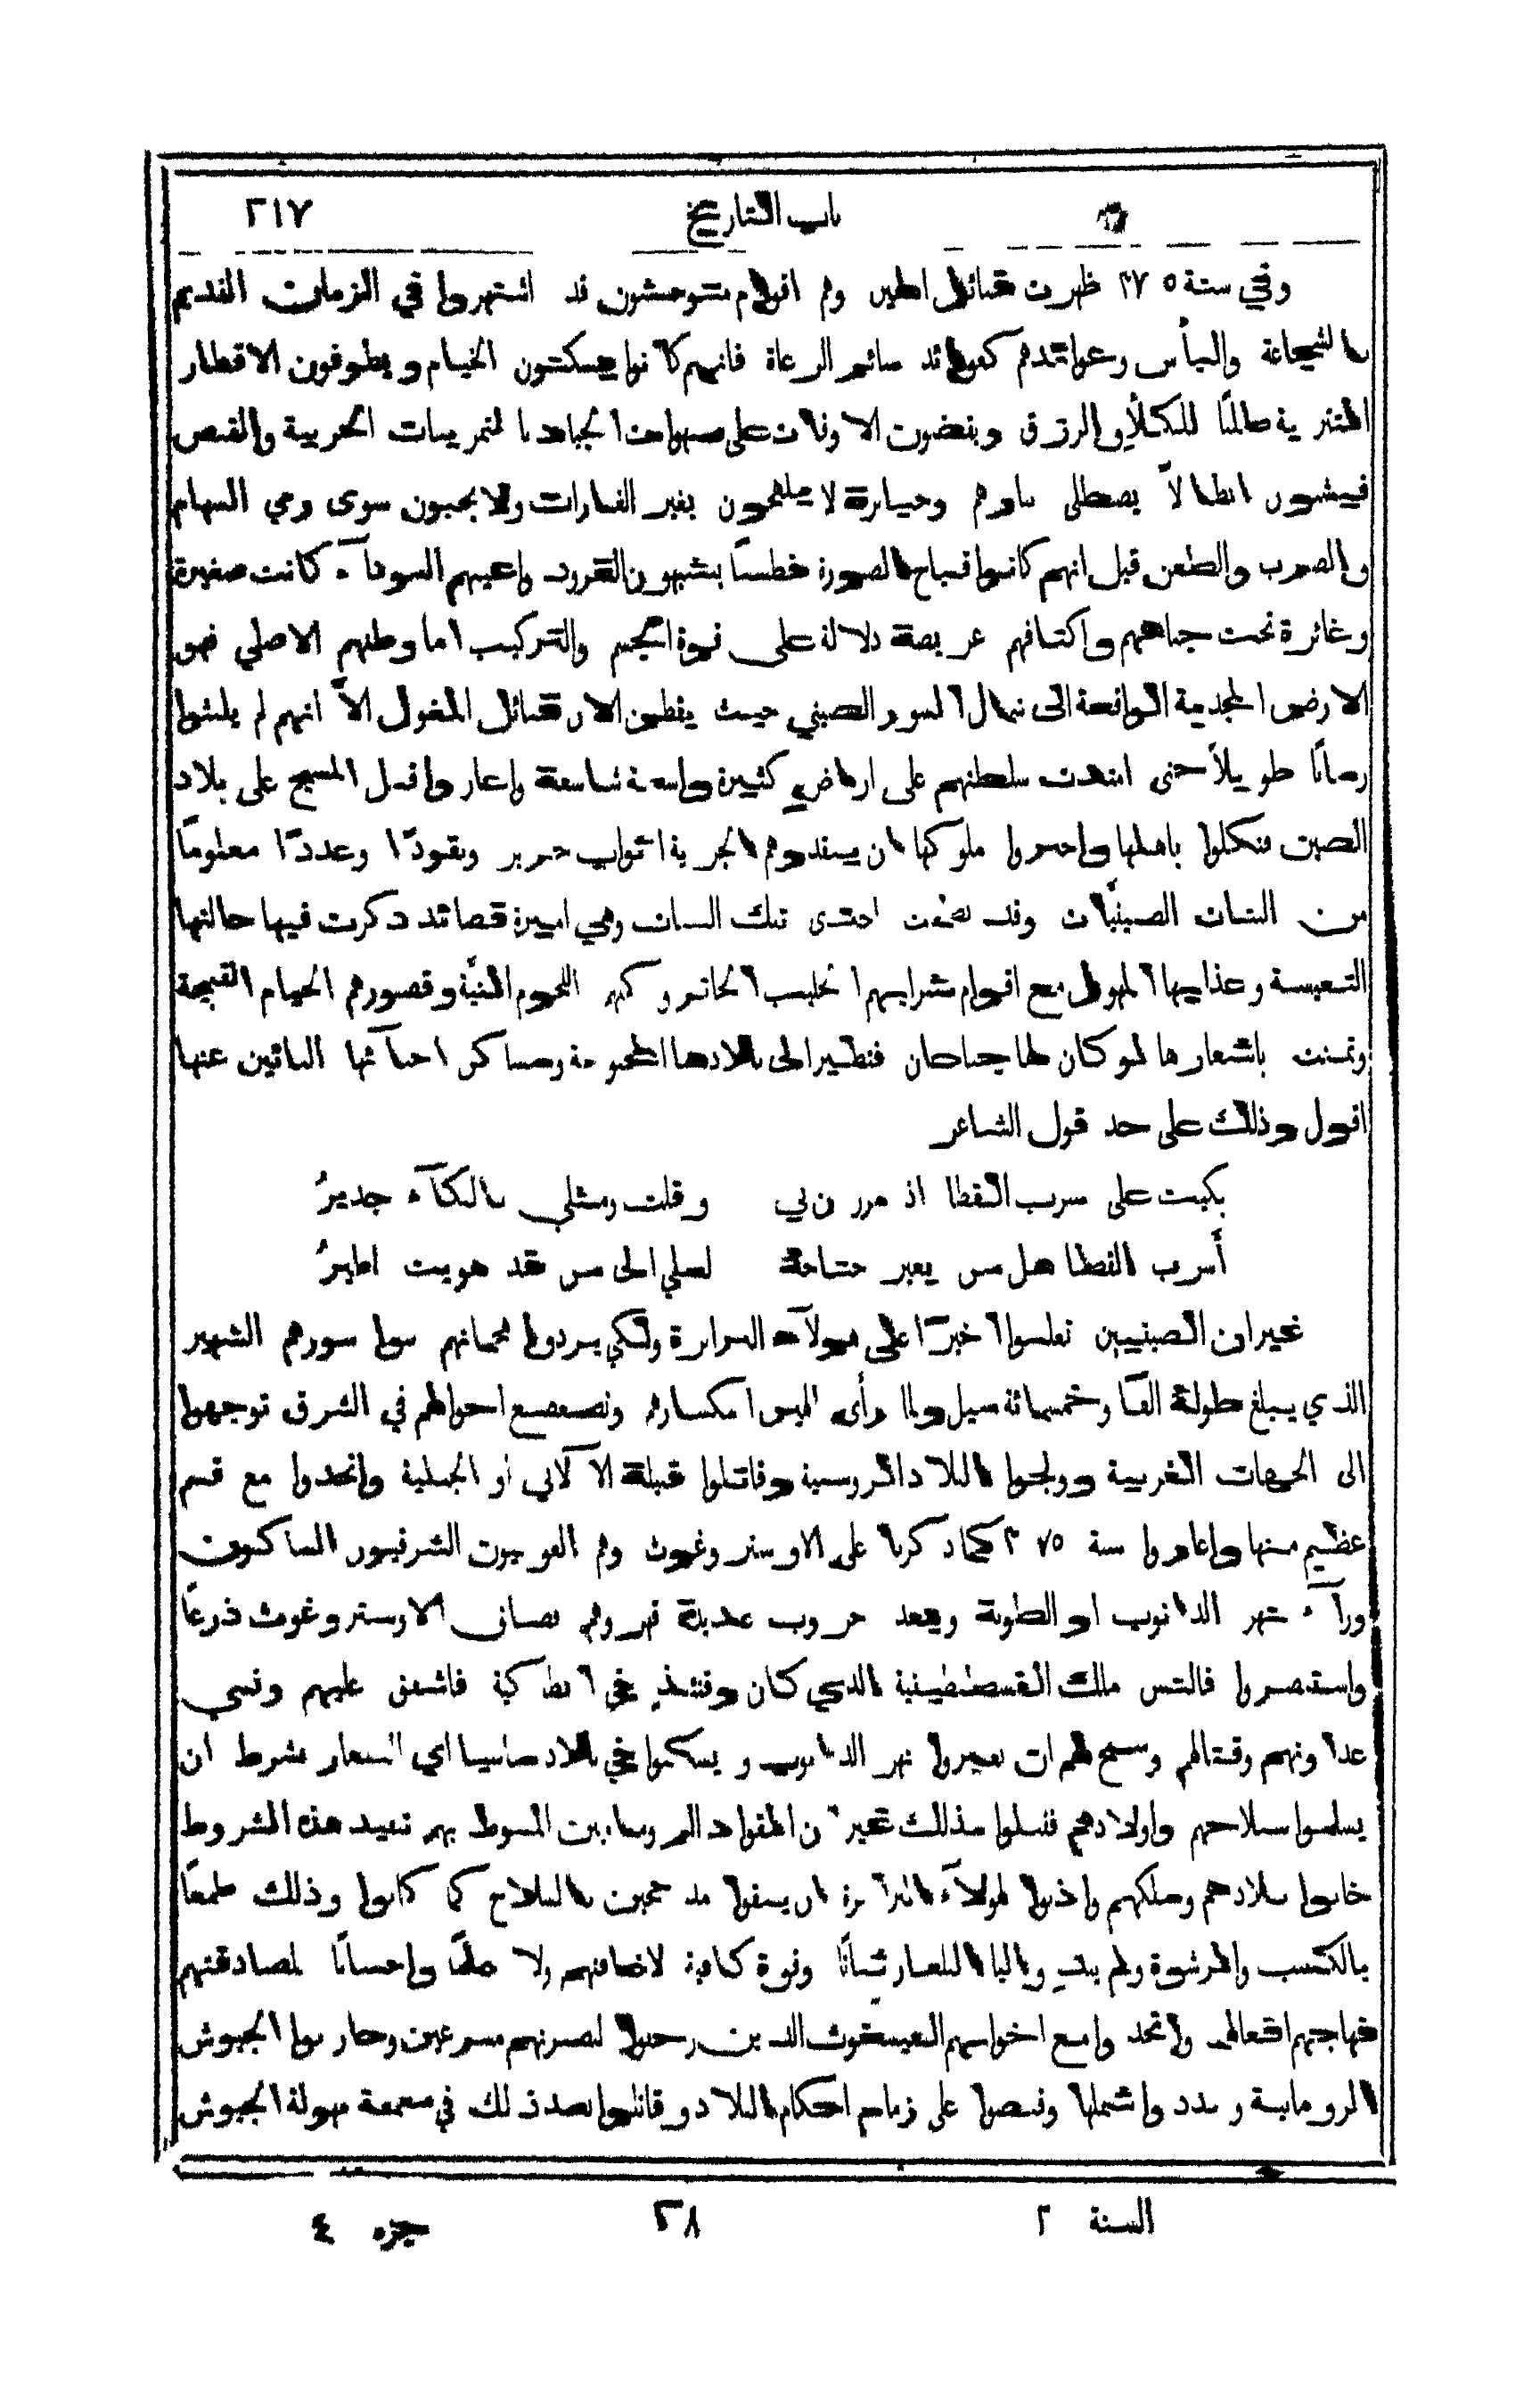 باب التاريخ ٢١٧
وفي سنة ٣٧٥ ظهرت قبائل الهين وهم اقوام متوحشون قد اشتهروا في الزمان القديم
بالشجاعة والبأس وعوائدهم كعوائد سائر الرعاة فانهم كانوا يسكنون الخيام ويطوفون الاقطار
طالبًا للكلأ والرزق ويقضون الاوقات على صهوات الجياد بالتمرينات الحربية والقنص
فيشبون ابطالاً يصطلى بنارهم وجبابرة لا يلهجون بغير الغارات ولا يحبون سوى رمي السهام
والضرب والطعن قيل انهم كانوا قباح الصورة فطسًا يشبهون القرود واعينهم السودآء كانت صغيرة
وغائرة تحت جباههم واكتافهم عريضة دلالة على قوة الجسم والتركيب اما وطنهم الاصلي فهو
الارض المجدبة الواقعة الى شمال السور الصيني حيث يقطن الان قبائل المغول الاّ انهم لم يلبثوا
زمانًا طويلاً حتى امتدت سلطتهم على اراضٍ كثيرة واسعة شاسعة واغار وا قبل المسيح على بلاد
الصين فنكلوا باهلها واجبروا ملوكها ان يفتدوهم الجزية اثواب حرير ونقودًا وعددًا معلومًا
من البنات الصينيَّات وقد احدى تلك البنات وهي اميرة قصائد ذكرت فيها حالتها
التعيسة وعذابها المهول مع اقوام شرابهم الحليب الخاثر و اللحوم النيَّة وقصورهم الخيام القبيحة
وتمنت باشعارها لو كان لها جناحان فتطير الى بلادها المحبوبة ومساكن احبآئها النائين عنها
اقول وذلك على حد قول الشاعر
بكيت على سرب القطا اذ مررن بي وقلت ومثلي بالبكآء جديرُ
أسرب القطا هل من يعير جناحهُ لعلي الى من قد هويت اطيرُ
غير ان الصينيين تغلبوا اخيرًا على هولآء البرابرة ولكي يردوا هجماتهم بنوا سورهم الشهير
الذي يبلغ طولهُ الفًا وخمسمائة ميل ولما رأى الهين انكسارهم وتضعضع احوالهم في الشرق توجهوا
الى الجهات الغربية وولجوا البلاد الروسية وقاتلوا قبيلة الآلاني او الجبلية واتحدوا مع قسم
عظيم منها واغاروا سنة ٣٧٥ كما ذكرنا على الاوستروغوث وهم الغوثيون الشرقيون الساكنون
ورآء نهر الدانوب او الطونة وبعد حروب عديدة قهروهم فضاق الاوستروغوث ذرعًا
واستنصروا فالنتس ملك القسطنطينية الذي كان وقتئذٍ في انطاكية فاشفق عليهم ونسي
عداوتهم وقتالهم وسمح لهم ان يعبروا نهر الدانوب ويسكنوا في بلاد ماسيا اي البلغار بشرط ان
يسلموا سلاحهم واولادهم فقبلوا بذلك غير ان القواد الرومانيين المنوط بهم تنفيذ هذه الشروط
خانوا بلادهم وملكهم واذنوا لهولآء البرابرة ان يبقوا مدججين بالسلاح كما كانوا وذلك طمعًا
بالكسب والرشوة ولم يبقِ والي البلغار ثيابًا وقوة كافية لاضافتهم ولا حلمًا واحسانًا لمصادقتهم
فهاجتهم افعالهُ واتحدوا مع اخوانهم الفيسقوث الذين رحلوا لنصرتهم مسرعين وحاربوا الجيوش
الرومانية و وقبضوا على زمام احكام البلاد وقاتلوا بعد ذلك في معمعة مهولة الجيوش
السنة ٢ ٢٨ جزء ٤